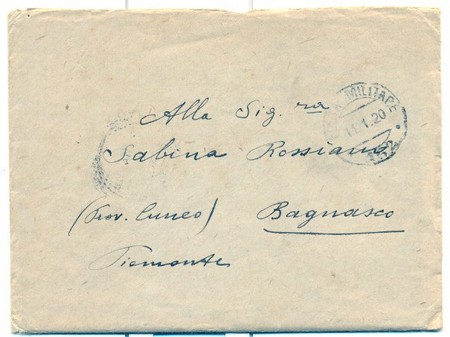 Alla Sig.ra
Sabina Rossiano
(Prov. Cuneo) Bagnasco
Piemonte
MILITARE
11.1.20